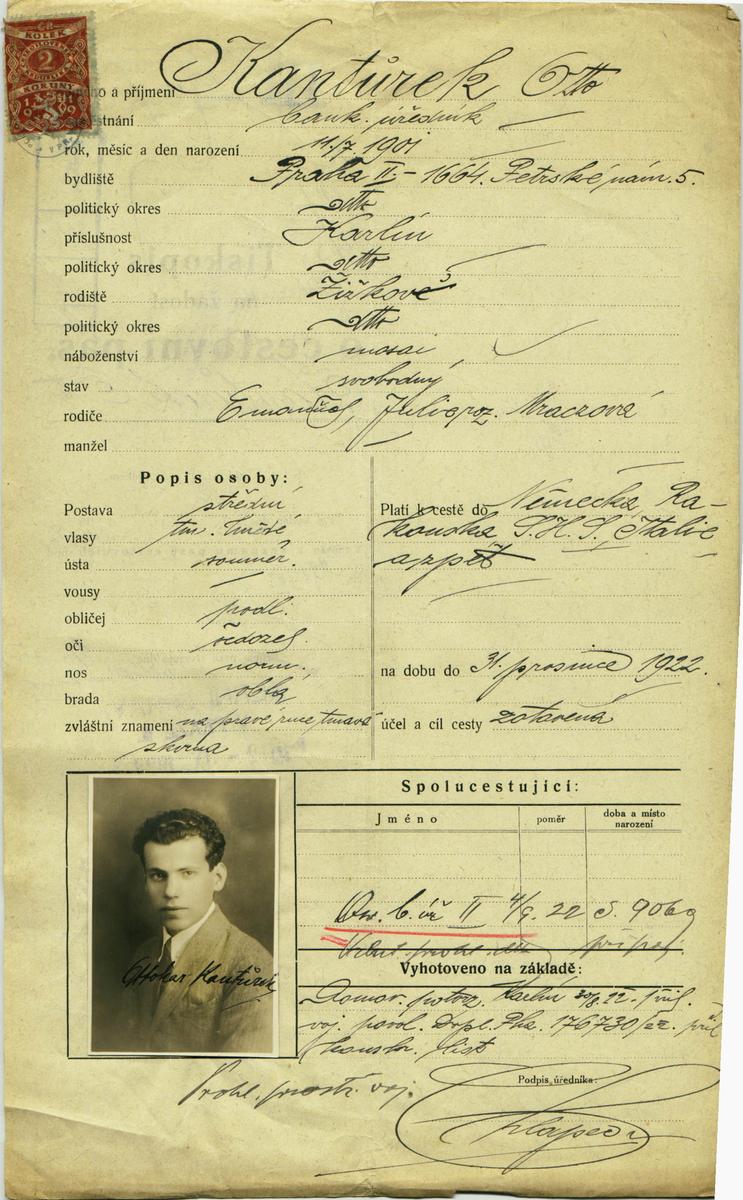 KOLEK
2
KORUNY
Kantůrek Otto
jméno a příjmení
zaměstnání bank. úředník
rok, měsíc a den narození 11/7. 1901
bydliště Praha II – 1664. Petrské nám. 5.
politický okres detto
příslušnost Karlín
politický okres detto
rodiště Žižkov
politický okres detto
náboženství mosai
stav svobodný
rodiče Emanuel, Julie roz. Mraczová
manžel —
Popis osoby:
Postava střední
vlasy tm. hnědé
ústa souměr.
vousy —
obličej podl.
oči šedozel.
nos norm.
brada oblá
zvláštní znamení na pravé ruce tmavá
skvrna
Platí k cestě do Německa, Ra-
kouska, S.H.S., Italie
a zpět
na dobu do 31. prosince 1922.
účel a cíl cesty zotavená
Spolucestující:
Jméno
poměr
doba a místo narození
II 4/9. 22
Vyhotoveno na základě:
Domov. potvrz. Karlín 30/8. 22. přil.
voj. povol. Dopl. Pha. 176730/22. přil
list
Ottokar Kantůrek
Prohl. voj.
Podpis úředníka: